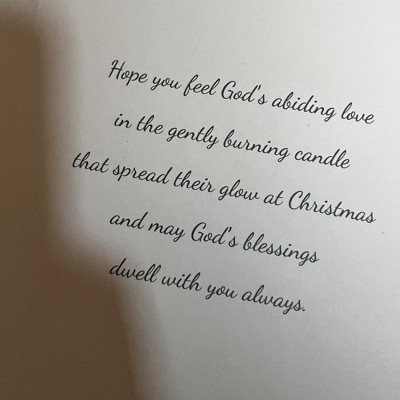 Hope you feel God's abiding love
in the gently burning candle
that spread their glow at Christmas
and may God's blessings
dwell with you always.